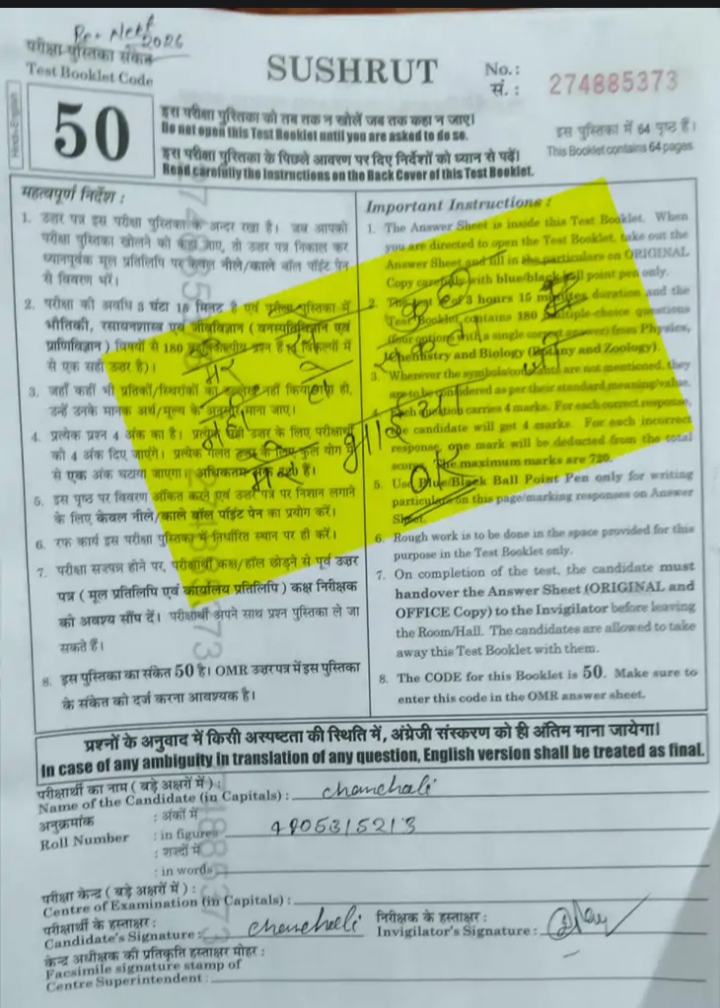 Re-Neet
2026
परीक्षा पुस्तिका संकेत
Test Booklet Code
SUSHRUT
No.:
सं. :
274885373
Hindi+English
50
इस परीक्षा पुस्तिका को तब तक न खोलें जब तक कहा न जाए।
Do not open this Test Booklet until you are asked to do so.
इस परीक्षा पुस्तिका के पिछले आवरण पर दिए निर्देशों को ध्यान से पढ़ें।
Read carefully the Instructions on the Back Cover of this Test Booklet.
इस पुस्तिका में 64 पृष्ठ हैं।
This Booklet contains 64 pages.
महत्वपूर्ण निर्देश :
1. उत्तर पत्र इस परीक्षा पुस्तिका के अन्दर रखा है। जब आपको
परीक्षा पुस्तिका खोलने को कहा जाए, तो उत्तर पत्र निकाल कर
ध्यानपूर्वक मूल प्रतिलिपि पर केवल नीले/काले बॉल पॉइंट पेन
से विवरण भरें।
2. परीक्षा की अवधि 3 घंटा 15 मिनट है एवं परीक्षा पुस्तिका में
भौतिकी, रसायनशास्त्र एवं जीवविज्ञान (वनस्पतिविज्ञान एवं
प्राणिविज्ञान) विषयों से 180 बहुविकल्पीय प्रश्न हैं
से एक सही उत्तर है)।
3. जहाँ कहीं भी प्रतीकों/स्थिरांकों का उल्लेख नहीं किया गया हो,
उन्हें उनके मानक अर्थ/मूल्य के अनुसार माना जाए।
4. प्रत्येक प्रश्न 4 अंक का है। प्रत्येक सही उत्तर के लिए परीक्षार्थी
को 4 अंक दिए जाएंगे। प्रत्येक गलत उत्तर के लिए कुल योग में
से एक अंक घटाया जाएगा। अधिकतम अंक 720 हैं।
5. इस पृष्ठ पर विवरण अंकित करने एवं उत्तर पत्र पर निशान लगाने
के लिए केवल नीले/काले बॉल पॉइंट पेन का प्रयोग करें।
6. रफ कार्य इस परीक्षा पुस्तिका में निर्धारित स्थान पर ही करें।
7. परीक्षा सम्पन्न होने पर, परीक्षार्थी कक्ष/हॉल छोड़ने से पूर्व उत्तर
पत्र (मूल प्रतिलिपि एवं कार्यालय प्रतिलिपि) कक्ष निरीक्षक
को अवश्य सौंप दें। परीक्षार्थी अपने साथ प्रश्न पुस्तिका ले जा
सकते हैं।
8. इस पुस्तिका का संकेत 50 है। OMR उत्तर पत्र में इस पुस्तिका
के संकेत को दर्ज करना आवश्यक है।
Important Instructions :
1. The Answer Sheet is inside this Test Booklet. When
you are directed to open the Test Booklet, take out the
Answer Sheet and fill in the particulars on ORIGINAL
Copy carefully with blue/black ball point pen only.
2. The test is of 3 hours 15 minutes duration and the
Test Booklet contains 180 multiple-choice questions
(four options with a single correct answer) from Physics,
Chemistry and Biology (Botany and Zoology).
3. Wherever the symbols/constants are not mentioned, they
are to be considered as per their standard meaning/value.
4. Each question carries 4 marks. For each correct response,
the candidate will get 4 marks. For each incorrect
response, one mark will be deducted from the total
score. The maximum marks are 720.
5. Use Blue/Black Ball Point Pen only for writing
particulars on this page/marking responses on Answer
Sheet.
6. Rough work is to be done in the space provided for this
purpose in the Test Booklet only.
7. On completion of the test, the candidate must
handover the Answer Sheet (ORIGINAL and
OFFICE Copy) to the Invigilator before leaving
the Room/Hall. The candidates are allowed to take
away this Test Booklet with them.
8. The CODE for this Booklet is 50. Make sure to
enter this code in the OMR answer sheet.
कुछ
नही हो सकता है
मेरे भाई या जी
OK
प्रश्नों के अनुवाद में किसी अस्पष्टता की स्थिति में, अंग्रेजी संस्करण को ही अंतिम माना जायेगा।
In case of any ambiguity in translation of any question, English version shall be treated as final.
परीक्षार्थी का नाम (बड़े अक्षरों में) :
Name of the Candidate (in Capitals) : chanchali
अनुक्रमांक : अंकों में
Roll Number : in figures 4905315213
: शब्दों में
: in words
परीक्षा केन्द्र (बड़े अक्षरों में) :
Centre of Examination (in Capitals) :
परीक्षार्थी के हस्ताक्षर :
Candidate's Signature : chanchali
निरीक्षक के हस्ताक्षर :
Invigilator's Signature :
केन्द्र अधीक्षक की प्रतिकृति हस्ताक्षर मोहर :
Facsimile signature stamp of
Centre Superintendent :